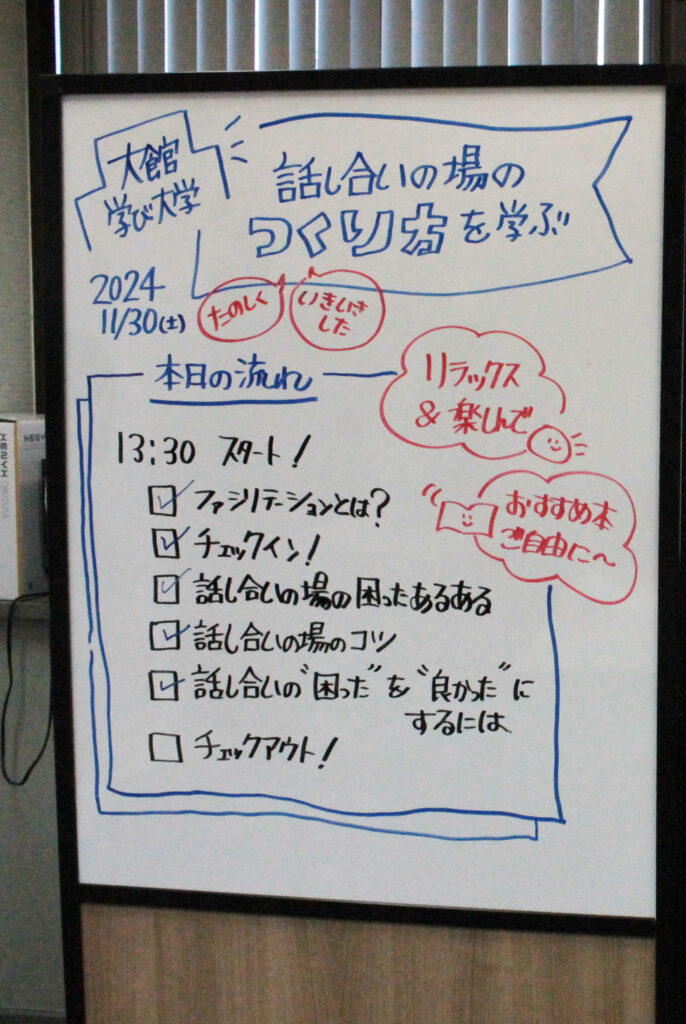 大館
学び大学
話し合いの場の
つくり方を学ぶ
2024
11/30(土)
たのしく
いきいき
した
本日の流れ
リラックス
&楽しんで
13:30 スタート!
☑ファシリテーションとは?
☑チェックイン!
☑話し合いの場の困ったあるある
☑話し合いの場のコツ
☑話し合いの"困った"を"良かった"に
するには
☐チェックアウト!
おすすめ本
ご自由に〜